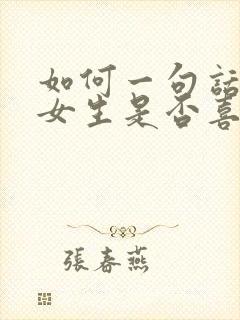 如何一句話
女生是否喜
張春燕